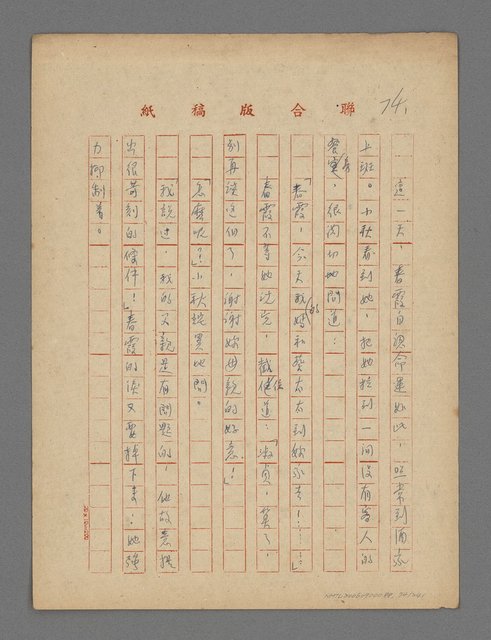 聯合版稿紙
74.
這一天,春霞自認命運如此,照常到酒家
上班。小秋看到她,把她拉到一間沒有客人的
房,很關切地問道:
「春霞,今天我媽和蔡太太到妳家去!……」
春霞不等她說完,截住道:「淑貞,算了,
別再談這個了,謝謝妳母親的好意!」
「怎麼呢?!」小秋詫異地問。
「我說過,我的父親是有問題的,他故意提
出很苛刻的條件!」春霞的淚又要掉下來;她強
力抑制著。